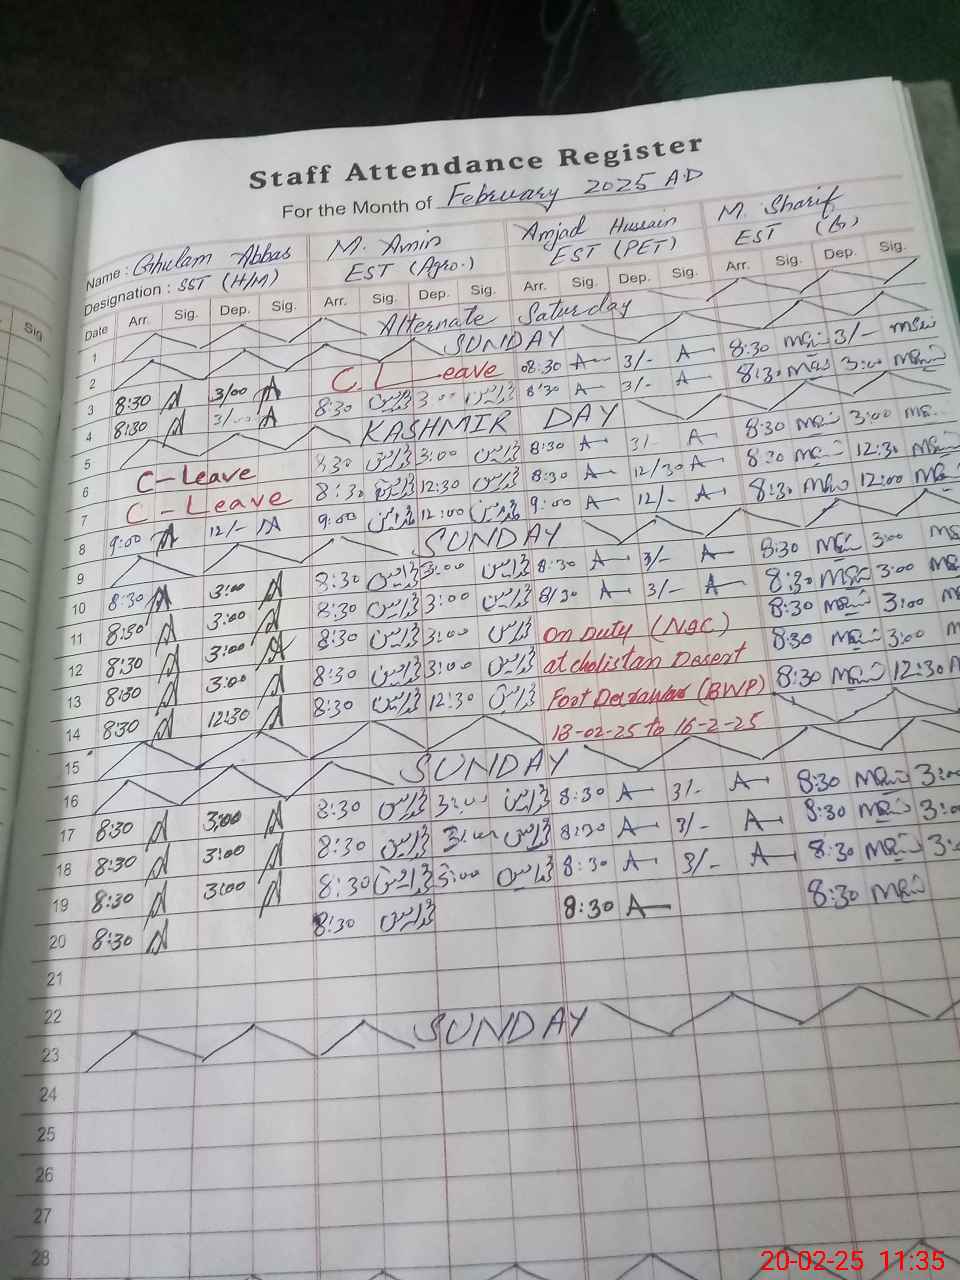 Staff Attendance Register
For the Month of February 2025 A.D
Name : Ghulam Abbas M. Amin Amjad Hussain M. Sharif
Designation : SST (H/M) EST (Agro.) EST (PET) EST (B)
Sig
Date Arr. Sig. Dep. Sig. Arr. Sig. Dep. Sig. Arr. Sig. Dep. Sig. Arr. Sig. Dep. Sig.
1 Alternate Saturday
2 SUNDAY
3 8:30 3/00 C. Leave 08:30 A 3/- A 8:30 3/-
4 8:30 3/- 8:30 3:00 8/30 A 3/- A 8:30 3:00
5 KASHMIR DAY
6 C-Leave 8:30 3:00 8:30 A 3/- A 8:30 3:00
7 C-Leave 8:30 12:30 8:30 A 12/30 A 8:30 12:30
8 9:00 12/- 9:00 12:00 9:00 A 12/- A 8:30 12:00
9 SUNDAY
10 8:30 3:00 8:30 3:00 8:30 A 3/- A 8:30 3:00
11 8:30 3:00 8:30 3:00 8/30 A 3/- A 8:30 3:00
12 8:30 3:00 8:30 3:00 On Duty (NBC) 8:30 3:00
13 8:30 3:00 8:30 3:00 at cholistan Desert 8:30 3:00
14 8:30 12:30 8:30 12:30 Foot Derdawar (BWP) 8:30 12:30
13-02-25 to 16-2-25
15
16 SUNDAY
17 8:30 3:00 8:30 3:00 8:30 A 3/- A 8:30 3:00
18 8:30 3:00 8:30 3:00 8:30 A 3/- A 8:30 3:00
19 8:30 3:00 8:30 3:00 8:30 A 3/- A 8:30 3:
20 8:30 8:30 8:30 A 8:30
21
22
23 SUNDAY
24
25
26
27
28
20-02-25 11:35